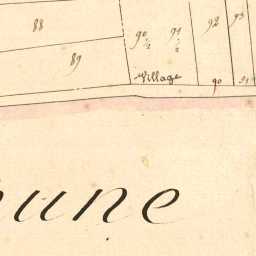 88
89
90 1/2
91 1/2
92
93
Village
90
91
une